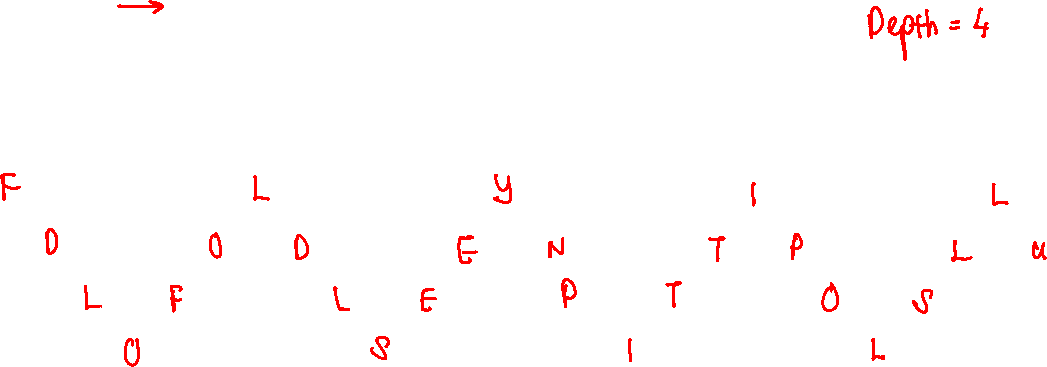 →
Depth = 4
F L Y I L
D O D E N T P L U
L F L E P T O S
O S I L